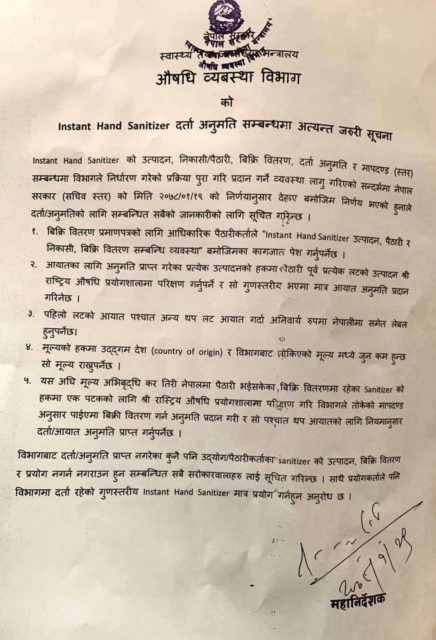 नेपाल सरकार
स्वास्थ्य मन्त्रालय
औषधि व्यबस्था विभाग
को
Instant Hand Sanitizer दर्ता अनुमति सम्बन्धमा अत्यन्त जरुरी सूचना
Instant Hand Sanitizer को उत्पादन, निकासी/पैठारी, बिक्रि वितरण, दर्ता अनुमति र मापदण्ड (स्तर)
सम्बन्धमा विभागले निर्धारण गरेको प्रक्रिया पुरा गरि प्रदान गर्ने व्यवस्था लागु गरिएको सन्दर्भमा नेपाल
सरकार (सचिव स्तर) को मिति २०७८/०१/१९ को निर्णयानुसार देहाए बमोजिम निर्णय भएको हुनाले
दर्ता/अनुमतिको लागि सम्बन्धित सबैको जानकारीको लागि सूचित गरिन्छ ।
१. बिक्रि वितरण प्रमाणपत्रको लागि आधिकारिक पैठारीकर्ताले "Instant Hand Sanitizer उत्पादन, पैठारी र
निकासी, बिक्रि वितरण सम्बन्धि व्यवस्था" बमोजिमका कागजात पेश गर्नुपर्नेछ ।
२. आयातका लागि अनुमति प्राप्त गरेका प्रत्येक उत्पादनको हकमा पैठारी पूर्व प्रत्येक लटको उत्पादन श्री
राष्ट्रिय औषधि प्रयोगशालामा परिक्षण गर्नुपर्ने र सो गुणस्तरीय भएमा मात्र आयात अनुमति प्रदान
गरिनेछ ।
३. पहिलो लटको आयात पश्चात अन्य थप लट आयात गर्दा अनिवार्य रुपमा नेपालीमा समेत लेबल
हुनुपर्नेछ।
४. मूल्यको हकमा उद्द्गम देश (country of origin) र विभागबाट तोकिएको मूल्य मध्ये जुन कम हुन्छ
सो मूल्य राख्नुपर्नेछ ।
५. यस अघि मूल्य अभिबृध्दि कर तिरी नेपालमा पैठारी भईसकेका, बिक्रि वितरणमा रहेका Sanitizer को
हकमा एक पटकको लागि श्री रास्ट्रिय औषधि प्रयोगशालामा परिक्षण गरि विभागले तोकेको मापदण्ड
अनुसार पाईएमा बिक्री वितरण गर्न अनुमति प्रदान गरी र सो पश्चात थप आयातको लागि नियमानुसार
दर्ता/आयात अनुमति प्राप्त गर्नुपर्नेछ ।
विभागबाट दर्ता/अनुमति प्राप्त नगरेका कुनै पनि उद्योग/पैठारीकर्ताका sanitizer को उत्पादन, बिक्रि वितरण
र प्रयोग नगर्न नगराउन हुन सम्बन्धित सबै सरोकारवालाहरु लाई सूचित गरिन्छ । साथै प्रयोगकर्ताले पनि
विभागमा दर्ता रहेको गुणस्तरीय Instant Hand Sanitizer मात्र प्रयोग गर्नहुन अनुरोध छ ।
महानिर्देशक